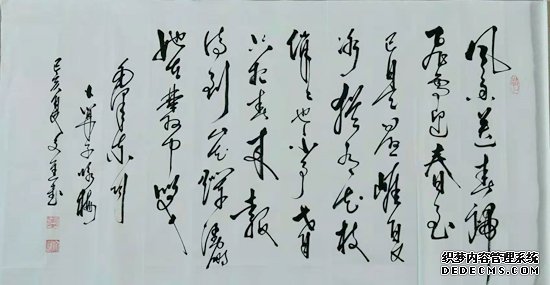 风雨送春归
飞雪迎春到
已是悬崖百丈
冰犹有花枝
俏俏也不争春
只把春来报
待到山花烂漫时
她在丛中笑
毛泽东词
卜算子咏梅
己亥夏文书
织梦内容管理系统
DEDECMS.COM